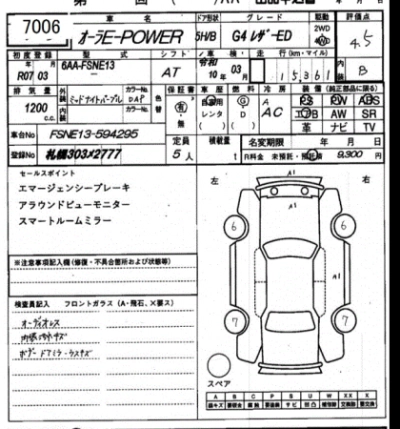 7006
車名
オーラE-POWER
ドア形状
5H/B
グレード
G4 レザーED
駆動
2WD
4WD
評価点
4.5
初度登録
年 月
R07 03
型式
6AA-FSNE13
シフト
AT
車検
令和 年 月
10 03
走行(km・マイル)
15,361
内装
B
排気量
1200
c.c.
外装
ミッドナイトパープル
カラーNo.
DAP
内装
カラーNo.
色替
保証書
有・無
車歴
自家用
レンタ
( )
燃料
G
D
( )
冷房
AC
装備(純正部品に限る)
PS PW ABS
エアB AW SR
革 ナビ TV
車台No
FSNE13-594295
登録No
札幌303ス2777
定員
5人
積載量
t
名変期限 年 月 日
R料金 未預託・預託済 9,900円
セールスポイント
エマージェンシーブレーキ
アラウンドビューモニター
スマートルームミラー
※注意事項記入欄(修復・不具合箇所および状態等)
検査員記入 フロントガラス(A・飛石、×要ス)
オーディオレス
内張リキズ
左
右
A1
6
6
A1
7
7
A1
スペア
A B C P S U W X XX